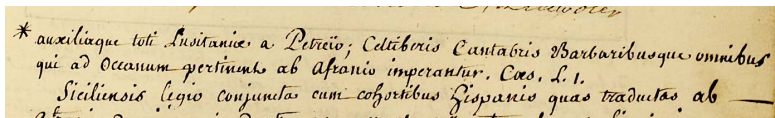 * auxiliaque toti Lusitaniæ a Petreïo; Celtiberis Cantabris Barbaribusque omnibus
qui ad Oceanum pertinent ab Afranio imperantur. Cæs. L. 1.
Siciliensis legio conjuncta cum cohortibus Hispanis quas traductas ab